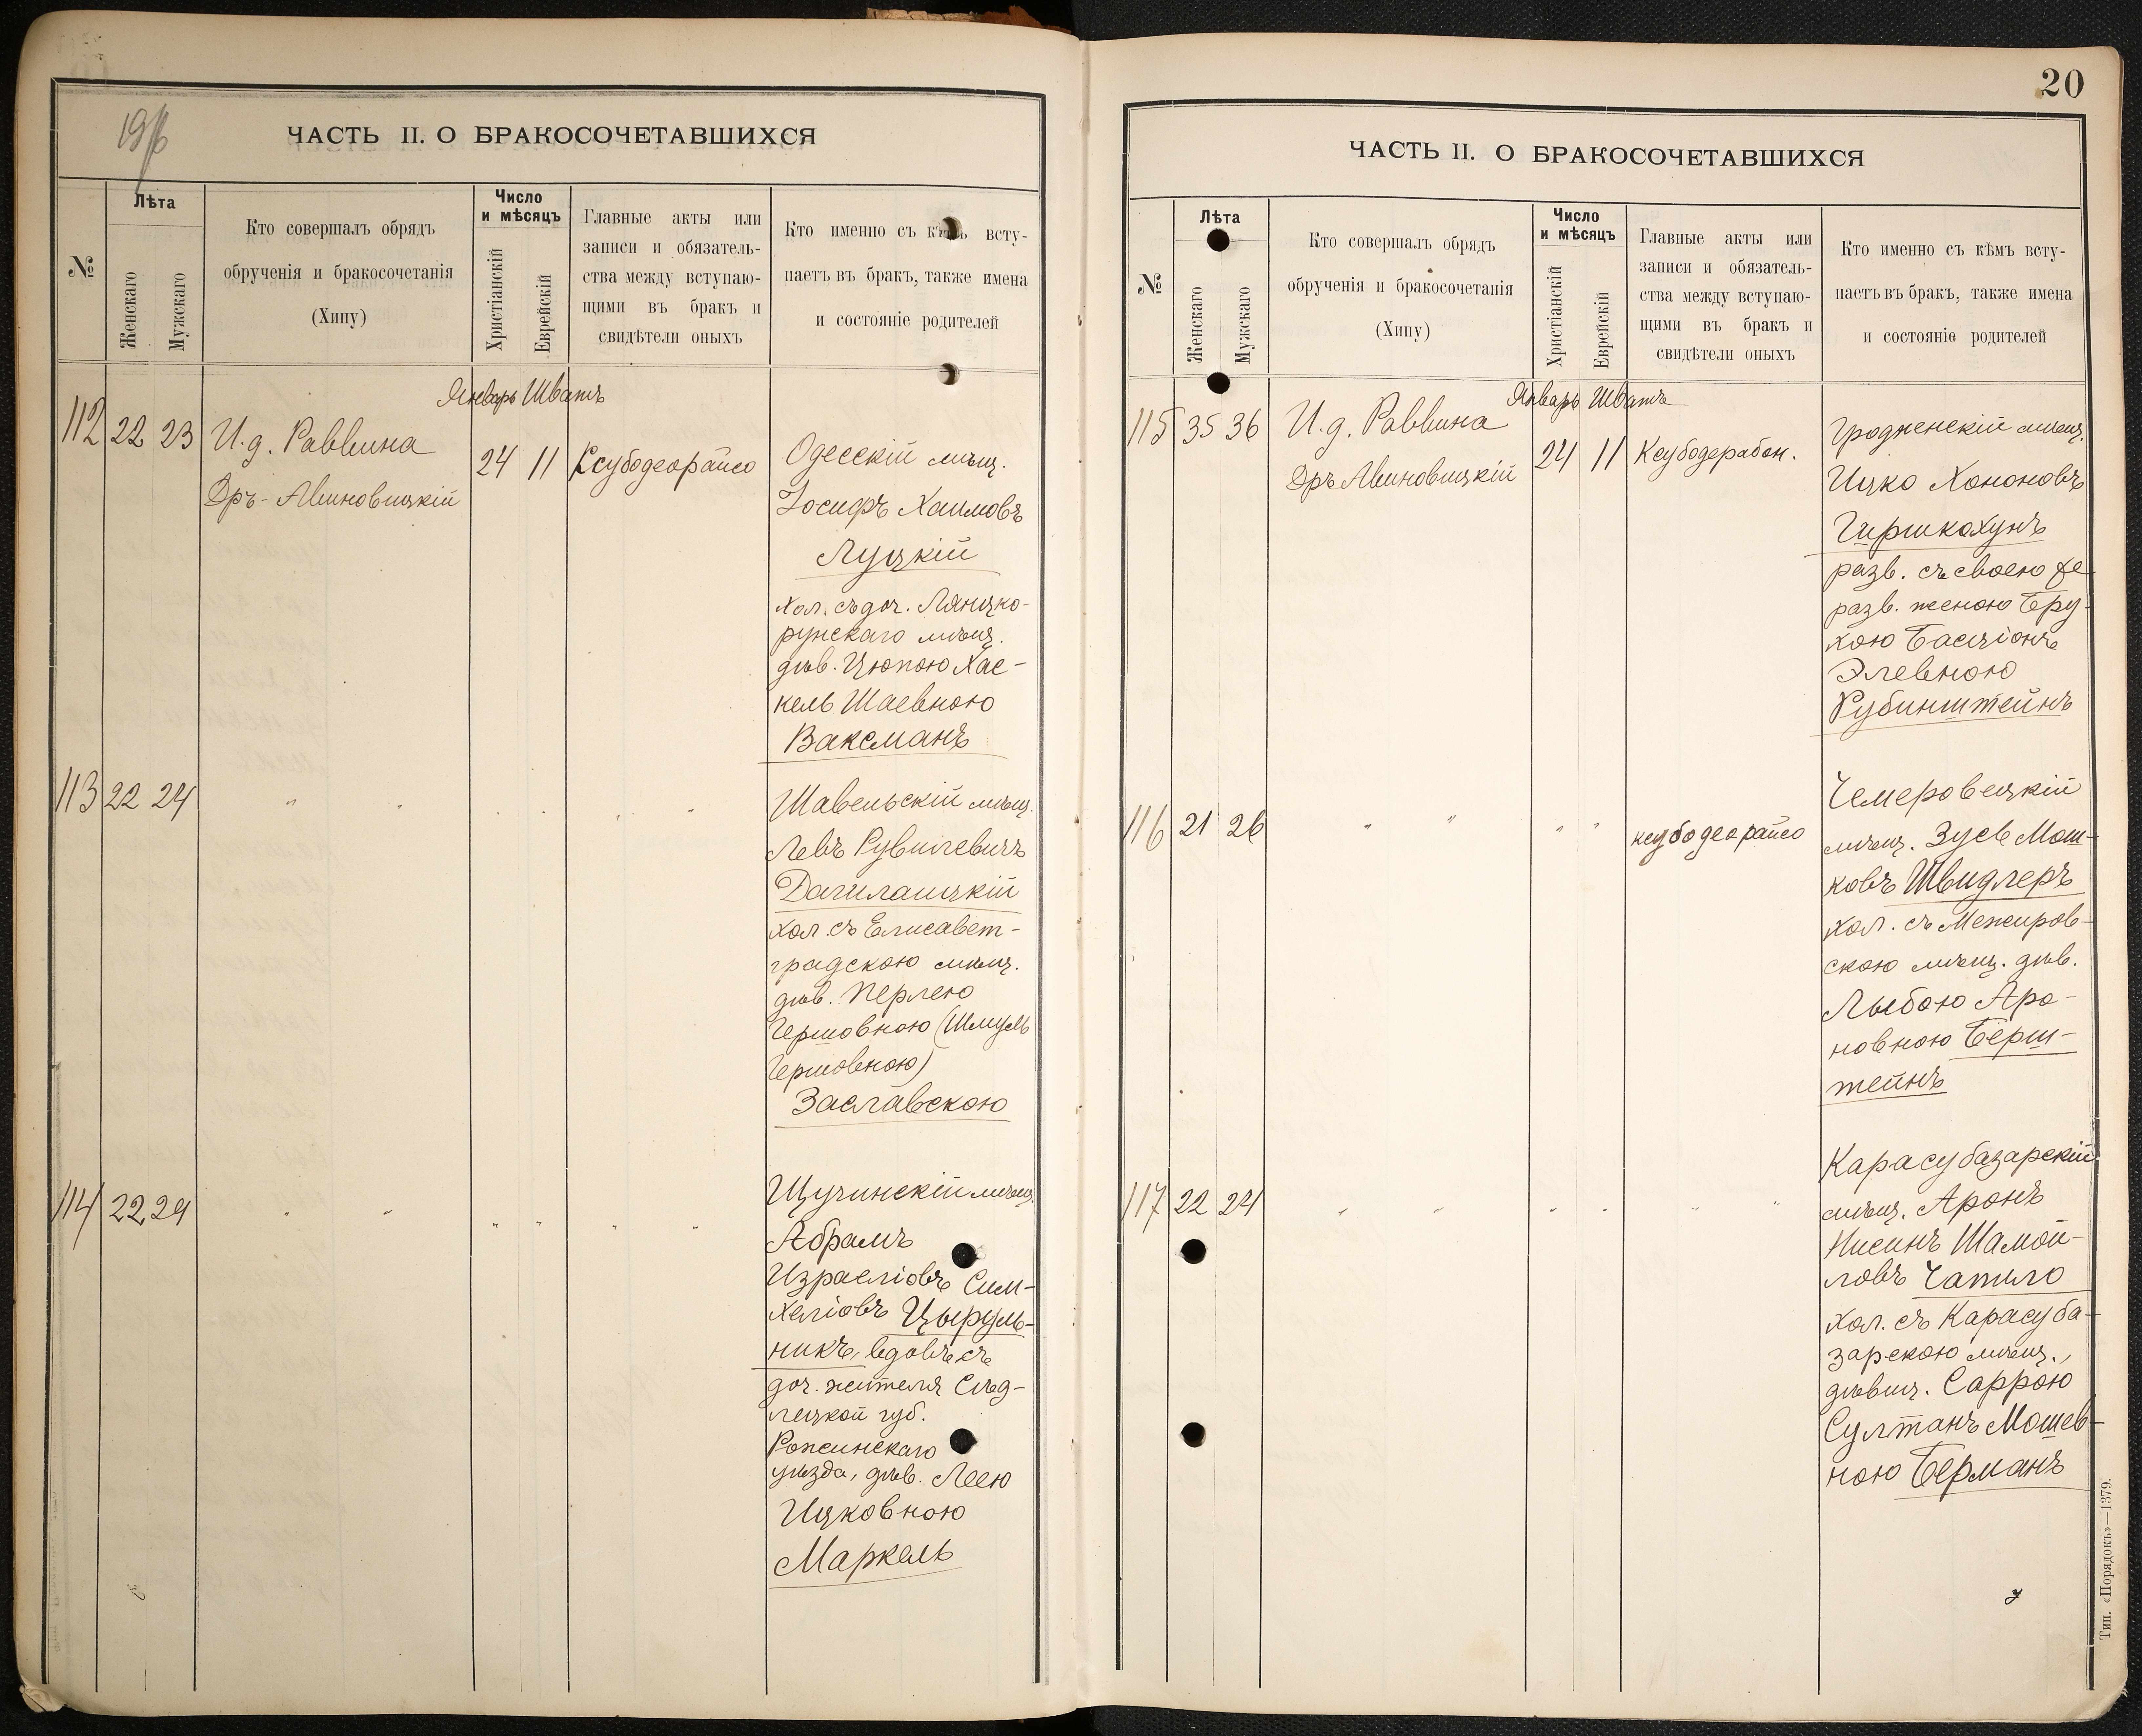 ЧАСТЬ II. О БРАКОСОЧЕТАВШИХСЯ
№
Лѣта
Женскаго
Мужскаго
Кто совершалъ обрядъ
обрученія и бракосочетанія
(Хипу)
Число
и мѣсяцъ
Христіанскій
Еврейскій
Главные акты или
записи и обязатель-
ства между вступаю-
щими въ бракъ и
свидѣтели оныхъ
Кто именно съ кѣмъ всту-
паетъ въ бракъ, также имена
и состояніе родителей
Январь Шватъ
112 22 23 И.д. Раввина
Дръ- Авиновицкій
24 11 Ксубодеорайсо
Одесскій мѣщ.
Іосифъ Хаимовъ
Луцкій
хол. съ доч. Лянцко-
рунскаго мѣщ.
дѣв. Цюпою Хас-
кель Шаевною
Ваксманъ
113 22 24 " " " " " "
Шавельскій мѣщ.
Левъ Рувилевичъ
Дагилайцкій
хол. съ Елисавет-
градскою мѣщ.
дѣв. Перлею
Гершовною (Шмуль
Гершовною)
Заславскою
114 22 29 " " " " " "
Щучинскій мѣщ.
Абрамъ
Израеліовъ Сим-
хеліовъ Цыруль-
никъ, вдовъ, съ
доч. жителя Сѣд-
лецкой губ.
уѣзда, дѣв. Леею
Ицковною
Маркель
20
ЧАСТЬ II. О БРАКОСОЧЕТАВШИХСЯ
№
Лѣта
Женскаго
Мужскаго
Кто совершалъ обрядъ
обрученія и бракосочетанія
(Хипу)
Число
и мѣсяцъ
Христіанскій
Еврейскій
Главные акты или
записи и обязатель-
ства между вступаю-
щими въ бракъ и
свидѣтели оныхъ
Кто именно съ кѣмъ всту-
паетъ въ бракъ, также имена
и состояніе родителей
Январь Шватъ
115 35 36 И.д. Раввина
Дръ Авиновицкій
24 11 Ксубодерабон.
Гродненскій мѣщ.
Ицко Хононовъ
Гиршкохунъ
разв. съ своею же
разв. женою Бру-
хою Басціонъ
Элевною
Рубинштейнъ
116 21 26 " " " " ксубодеорайсо
Чемеровецкій
мѣщ. Зусь Мош-
ковъ Швидлеръ
хол. съ Межиров-
скою мѣщ. дѣв.
Лыбою Аро-
новною Берш-
тейнъ
117 22 24 " " " " " "
Карасубазарскій
мѣщ. Аронъ
Нисинъ Шамой-
ловъ Чапило
хол. съ Карасуба-
зарскою мѣщ.,
дѣвиц. Саррою
Султанъ Мошев-
ною Берманъ
Тип. «Порядокъ»—1379.